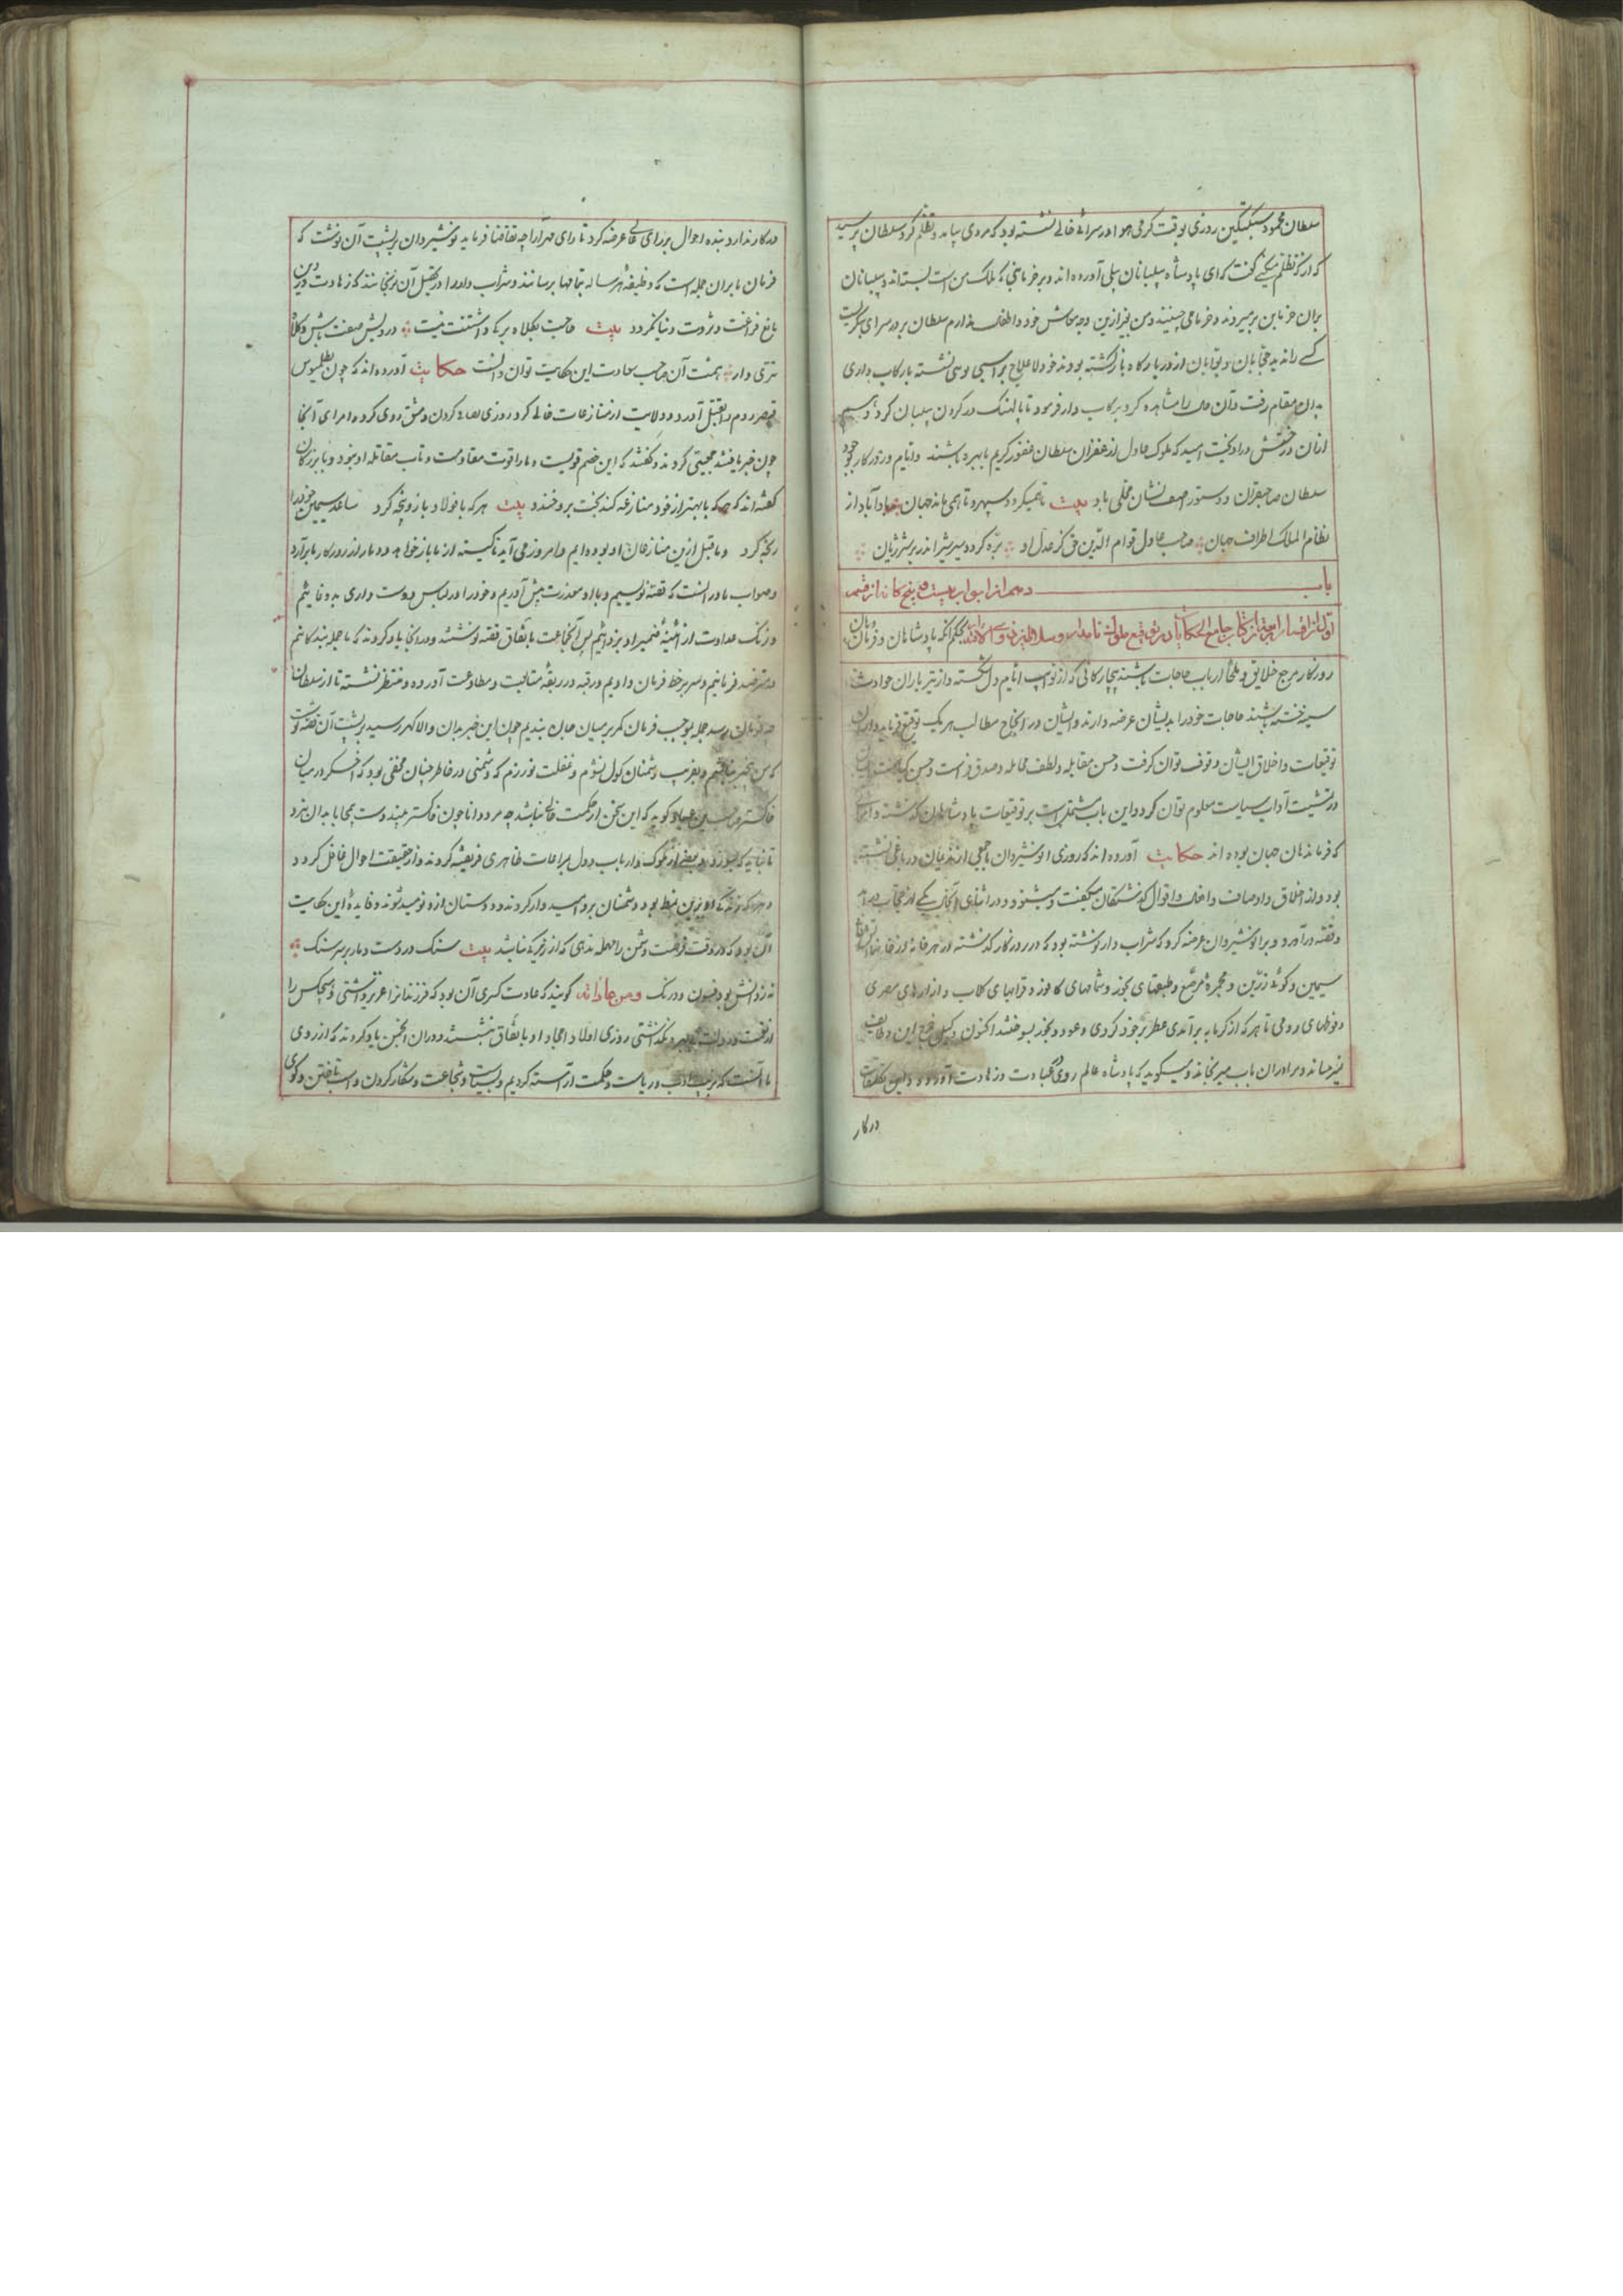 سلطان محمود سبکتکین روزی بوقت کرمی هوا در سرائی خالی نشسته بود که مردی بیامد و تظلم کرد سلطان پرسید
که از که تظلم میکنی گفت که ای پادشاه پیلبانان پیلی آورده اند و بر خرمابنی که ملک من است بسته اند و پیلبانان
بران خرمابن برمیروند و خرما می چینند و من بغیر ازین وجه معاش خود و اطفال ندارم سلطان بر در سرای نکریست
کسی را ندید حجابان و بوابان از در بارکاه بازکشته بودند خود لاعلاج بر اسبی نشسته با رکاب داری
بدان مقام رفت و آن را مشاهده کرد برکاب دار فرمود تا پالهنک در کردن پیلبان کرد و هم
ازان درختش دراویخت امید که ملوک عادل از غفران سلطان غفور کریم با بهره باشند و ایام و روزکار
سلطان صاحبقران و دستور آصف نشان محلی باد بیت تا همیکردد سپهر و تا همی ماند جهان باد آباد از
نظام الملک اطراف جهان صاحب عادل قوام الدین حق کز عدل او بره کردد سیر شیر از شیر ژیان
باب دهم از ابواب بیست و پنج کانه از قسم
اول از اقسام اربعه از کتاب جامع الحکایات در توقیع ملوک نامدار و سلاطین بحکم آنکه پادشاهان و فرمان
روزکار مرجع خلایق و ملجأ ارباب حاجات باشند بیچارکانی که از نوایب ایام دل شکسته و از تیر باران حوادث
سینه خسته باشند حاجات خود را بدیشان عرضه دارند و ایشان در انجاح مطالب هر یک توقیع فرمایند و از آن
توقیعات و اخلاق ایشان وقوف توان کرفت و حسن مقابله و لطف مجامله و صدق فراست و حسن
در تمشیت آداب سیاست معلوم توان کرد و این باب مشتمل است بر توقیعات پادشاهان کذشته و آنها
که فرماندهان جهان بوده اند حکایت آورده اند که روزی انوشیروان با جمعی از ندیمان در باغی نشسته
بود و از اخلاق و اوصاف و افعال و اقوال کذشتکان میکفت و میشنود و در اثنای آنحال یکی از حجاب درآمد
و قصه درآورد و بر انوشیروان عرضه کرد که شراب دار نوشته بود که در روزکار کذشته از هر خانه
سیمین و کوی زرین و مجمره مرصع و طبقهای بخور و شمامهای کافور و قرابهای کلاب و ازارهای مصری
و فوطهای رومی تا هر که از کرمابه برآمدی عطر بر خود کردی و عود و بخور بسوختند اکنون وکیل خرج این وظایف
نمیرساند و برادران باب میرنجاند و میکوید که پادشاه عالم روی بعبادت و زهادت آورده
درکار
درکار ندارد بنده احوال بر رای عالی عرضه کرد تا رای جهان آرا چه تقاضا فرماید نوشیروان بر پشت آن نوشت که
فرمان ما بران جمله است که وظیفه هر ساله بتمامها برسانند و شراب دار را در تحصیل آن نرنجانند که زهادت و دین
مانع فراغت و ثروت دنیا نکردد بیت حاجت بکلاه برکی داشتنت نیست درویش صفت باش و کلاه
تتری دار همت آن صاحب سعادت این حکایت توان دانست حکایت آورده اند که چون بطلمیوس
قیصر روم را بقتل آورد و ولایت از منازعت خالی کرد روزی دمشق روی کرد و امرای آنجا
چون خبر یافتند جمعیتی کردند و کفتند که این خصم قویست و ما را قوت مقاومت و تاب مقاتله او نبود و بزرکان
کفته اند که هر که با بهتر از خود منازعه کند بخت برو خندد بیت هر که با فولاد بازو پنجه کرد ساعد سیمین خود را
رنجه کرد و ما قبل ازین منازعان او بوده ایم و امروز می آید تا کینه از ما باز خواهد و دمار از روزکار ما برآرد
و صواب ما در آنست که قصه نویسیم و با او معذرت پیش آوریم و خود را در لباس دوست داری بدو نمائیم
و زنک عداوت از آئینه ضمیر او بزدائیم پس آنجماعت باتفاق قصه نوشتند و در انجا یاد کردند که ما جمله بندکانیم
و مترصد فرمانیم و سر بر خط فرمان داریم و رقبه در ربقه متابعت و مطاوعت آورده و منتظر نشسته تا از سلطان
چه فرمان رسد جمله بموجب فرمان کمر بر میان جان بندیم چون این خبر بدان والا کهر رسید بر پشت آن قصه نوشت
که من و بفریب دشمنان کول نشوم و غفلت نورزم که دشمنی در خاطر چنان مخفی بود که اخکر در میان
خاکستر کوید که این سخن از حکمت خالی نباشد چه مرد دانا چون خاکستر بیند دست بمحابا بدان نبرد
تا نباید که بسوزد و بعضی از ملوک و ارباب دول بمراعات ظاهری فریفته کردند و از حقیقت احوال غافل کردد
و هر که زندکانی او برین نمط بود دشمنان برو امیدوار کردند و دوستان ازو نومید شوند و فایده این حکایت
آن بود که در وقت فرصت دشمن را مهمله ندهی که از خردمندی نباشد بیت سنک در دست و مار بر سر سنک
نه ز دانش بود فسون و درنک ومن عاداته کویند که عادت کسری آن بود که فرزندانرا عزیز داشتی و هیچکس را
نکذشتی روزی اولاد امجاد او باتفاق بنشستند و در آن انجمن یاد کردند که از روی
ما آنست که بزینت ادب و ریاست و حکمت آراسته کردیم و بسیاست و شجاعت و شکار کردن و اسب تاختن و کوی